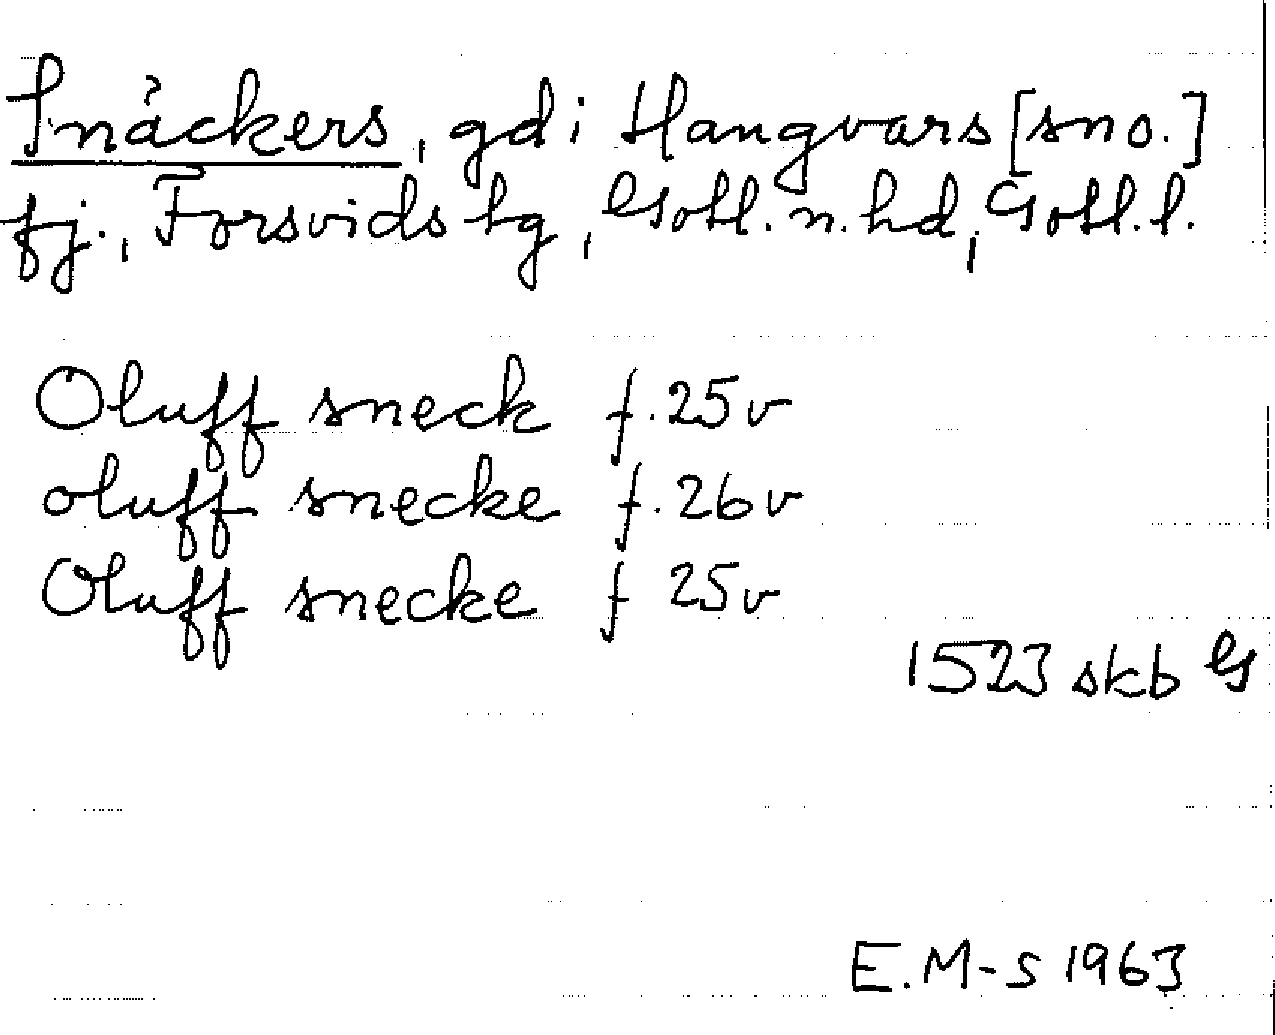 Snäckers, gd i Hangvars [sno.]
fj., Forsvids tg, Gotl. n. hd, Gotl. l.
Oluff sneck f. 25v
oluff snecke f. 26v
Oluff snecke f 25v
1523 skb G
E.M-s 1963